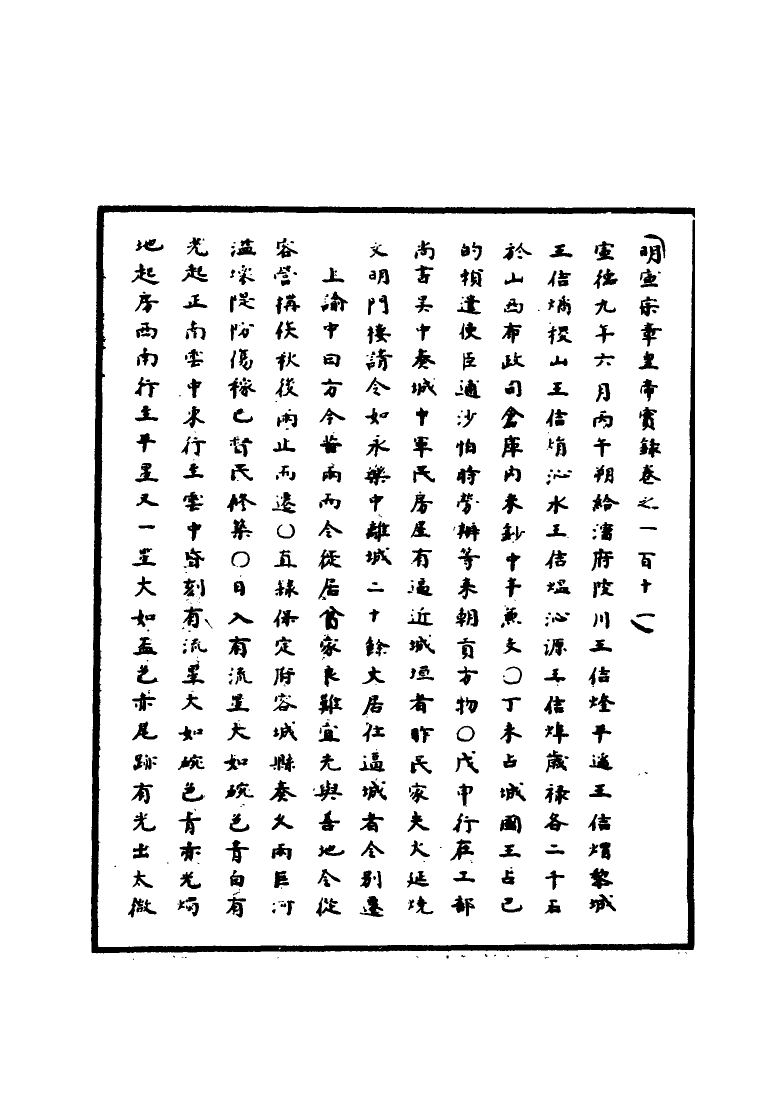 明宣宗章皇帝實錄卷之一百十一
宣德九年六月丙午朔給瀋府陵川王信㷂平遙王信煟黎城
王信𤊨稷山王信焇沁水王信熅沁源王信㷆歲祿各二千石
於山西布政司倉庫內米鈔中半兼支○丁未占城國王占巴
的賴遣使臣逋沙怕時勞辦等來朝貢方物○戊申行在工部
尚書吳中奏城中軍民房屋有逼近城垣者昨民家失火延燒
文明門樓請令如永樂中離城二十餘丈居住逼城者令別遷
上諭中曰方今暑雨而令徙居貧家良難宜先與善地令從
容營構俟秋後雨止而遷○直隸保定府容城縣奏久雨巨河
溢壞隄防傷稼已督民修築○日入有流星大如碗色青白有
光起正南雲中東行至雲中昏刻有流星大如碗色青赤光燭
地起房西南行至平星又一星大如盃色赤尾跡有光出太微